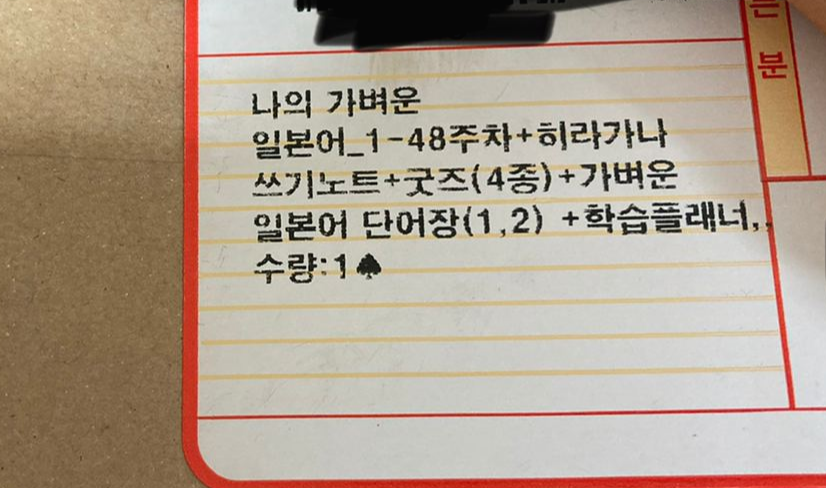 나의 가벼운
일본어_1-48주차+히라가나
쓰기노트+굿즈(4종)+가벼운
일본어 단어장(1,2) +학습플래너,,
수량:1♠
분